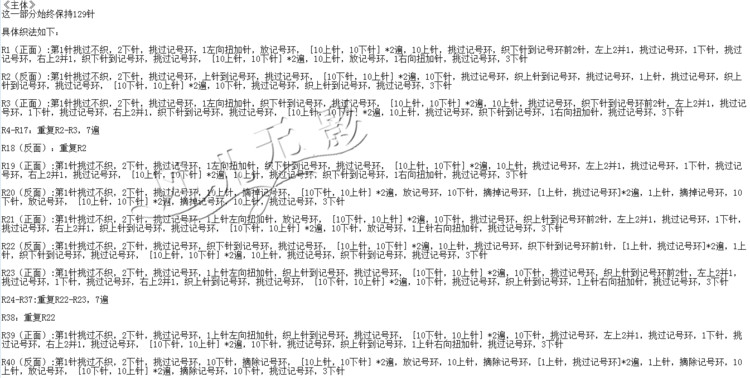 《主体》
这一部分始终保持129针
具体织法如下:
R1（正面）:第1针挑过不织，2下针，挑过记号环，1左向扭加针，放记号环，[10上针，10下针]*2遍，10上针，挑过记号环，织下针到记号环前2针，左上2并1，挑过记号环，1下针，挑过记
号环，右上2并1，织下针到记号环，挑过记号环，[10上针，10下针]*2遍，10上针，放记号环，1右向扭加针，挑过记号环，3下针
R2（反面）:第1针挑过不织，2下针，挑过记号环，上针到记号环，挑过记号环，[10下针，10上针]*2遍，10下针，挑过记号环，织上针到记号环，挑过记号环，1上针，挑过记号环，织上
针到记号环，挑过记号环，[10下针，10上针]*2遍，10下针，挑过记号环，织上针到记号环，挑过记号环，3下针
R3（正面）:第1针挑过不织，2下针，挑过记号环，1左向扭加针，织下针到记号环，挑过记号环，[10上针，10下针]*2遍，10上针，挑过记号环，织下针到记号环前2针，左上2并1，挑过记
号环，1下针，挑过记号环，右上2并1，织下针到记号环，挑过记号环，[10上针，10下针]*2遍，10上针，挑过记号环，织下针到记号环，1右向扭加针，挑过记号环，3下针
R4-R17：重复R2-R3，7遍
R18（反面）：重复R2
R19（正面）:第1针挑过不织，2下针，挑过记号环，1左向扭加针，织下针到记号环，挑过记号环，[10上针，10下针]*2遍，10上针，挑过记号环，左上2并1，挑过记号环，1下针，挑过记
号环，右上2并1，挑过记号环，[10上针，10下针]*2遍，10上针，挑过记号环，织下针到记号环，1右向扭加针，挑过记号环，3下针
R20（反面）:第1针挑过不织，2下针，挑过记号环，10上针，摘掉记号环，[10下针，10上针]*2遍，放记号环，10下针，摘掉记号环，[1上针，挑过记号环]*2遍，1上针，摘掉记号环，10
下针，放记号环，[10上针，10下针]*2遍，摘掉记号环，10上针，挑过记号环，3下针
R21（正面）:第1针挑过不织，2下针，挑过记号环，1上针左向扭加针，放记号环，[10下针，10上针]*2遍，10下针，挑过记号环，织上针到记号环前2针，左上2并1，挑过记号环，1下针，
挑过记号环，右上2并1，织上针到记号环，挑过记号环，[10下针，10上针]*2遍，10下针，放记号环，1上针右向扭加针，挑过记号环，3下针
R22（反面）:第1针挑过不织，2下针，挑过记号环，织下针到记号环，挑过记号环，[10上针，10下针]*2遍，10上针，挑过记号环，织下针到记号环前1针，[1上针，挑过记号环]*2遍，1上
针，织下针到记号环，挑过记号环，[10上针，10下针]*2遍，10上针，挑过记号环，织下针到记号环，挑过记号环，3下针
R23（正面）:第1针挑过不织，2下针，挑过记号环，1上针左向扭加针，织上针到记号环，挑过记号环，[10下针，10上针]*2遍，10下针，挑过记号环，织上针到记号环前2针，左上2并1，
挑过记号环，1下针，挑过记号环，右上2并1，织上针到记号环，挑过记号环，[10下针，10上针]*2遍，10下针，挑过记号环，织上针到记号环，1上针右向扭加针，挑过记号环，3下针
R24-R37:重复R22-R23，7遍
R38：重复R22
R39（正面）:第1针挑过不织，2下针，挑过记号环，1上针左向扭加针，织上针到记号环，挑过记号环，[10下针，10上针]*2遍，10下针，挑过记号环，左上2并1，挑过记号环，1下针，挑
过记号环，右上2并1，挑过记号环，[10下针，10上针]*2遍，10下针，挑过记号环，织上针到记号环，1上针右向扭加针，挑过记号环，3下针
R40（反面）:第1针挑过不织，2下针，挑过记号环，10下针，摘除记号环，[10上针，10下针]*2遍，放记号环，10上针，摘除记号环，[1上针，挑过记号环]*2遍，1上针，摘除记号环，10
上针，放记号环，[10下针，10上针]*2遍，摘除记号环，10下针，挑过记号环，3下针